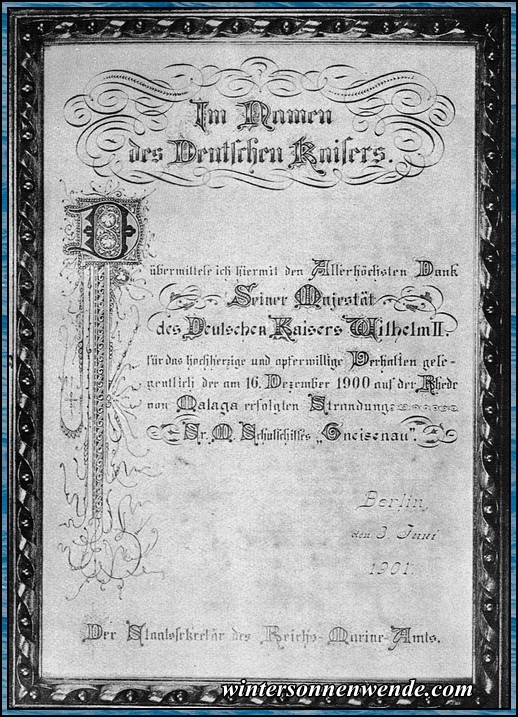 Im Namen
des Deutschen Kaisers.
D
übermittele ich hiermit den Allerhöchsten Dank
Seiner Majestät
des Deutschen Kaisers Wilhelm II.
für das hochherzige und opferwillige Verhalten gele-
gentlich der am 16. Dezember 1900 auf der Rhede
von Malaga erfolgten Strandung
Sr. M. Schulschiffes „Gneisenau".
Berlin,
den 3. Juni
1901.
Der Staatssekretär des Reichs-Marine-Amts.
wintersonnenwende.com